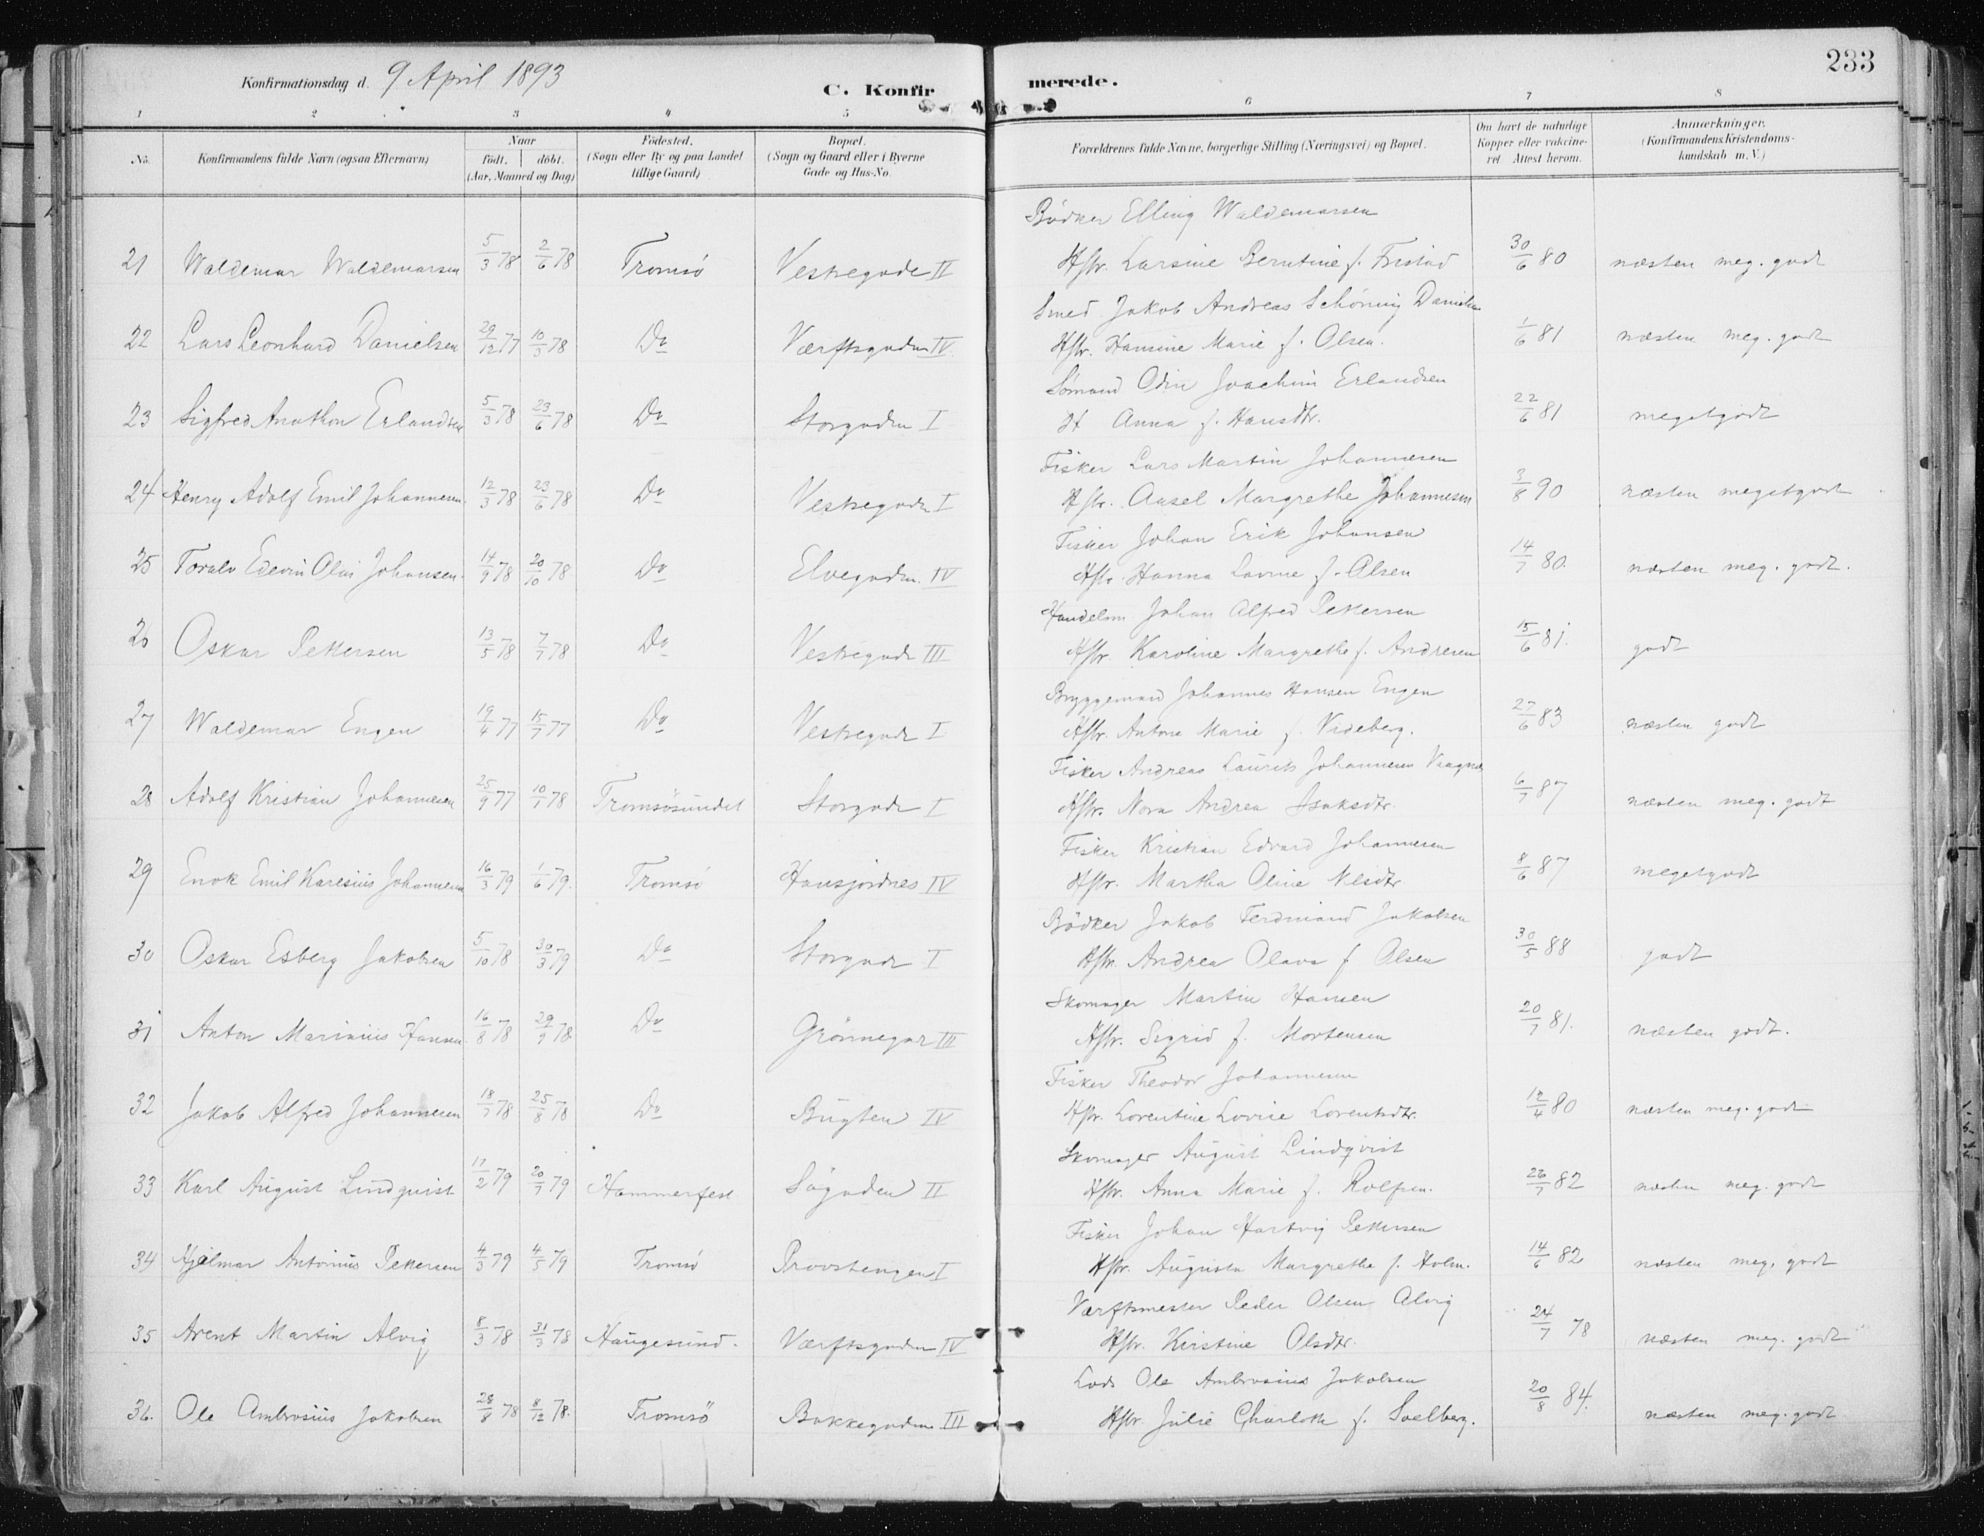 Konfirmationsdag d. 9 April 1893
C. Konfirmerede.
233
1 2 3 4 5 6 7 8
No. Konfirmandens fulde Navn (ogsaa Efternavn) Naar födt. döbt. (Aar, Maaned og Dag) Födested. (Sogn eller By og paa Landet tillige Gaard) Bopæl. (Sogn og Gaard eller i Byerne Gade og Hus-No. Forældrenes fulde Navne, borgerlige Stilling (Næringsvei) og Bopæl. Om havt de naturlige Kopper eller vakcineret Attest herom. Anmærkninger. (Konfirmandens Kristendomskundskab m. V.)
Bödker Elling Waldemarsen
21 Waldemar Waldemarsen 5/3 78 2/6 78 Tromsö Vestregade II Hstr. Larsine Berntine f. Fristad 30/6 80 næsten meg. godt
Smed Jakob Andreas Schöning Danielsen
22 Lars Leonhard Danielsen 29/12 77 10/3 78 Do Værftsgaden IV. Hstr. Hansine Marie f. Olsen. 1/6 81 næsten meg. godt
Sömand Odin Joachim Erlandsen
23 Sigfred Anathon Erlandsen 5/3 78 23/6 78 Do Storgaden I H Anna f. Hansdtr. 22/6 81 megetgodt
Fisker Lars Martin Johannesen
24 Henry Adolf Emil Johannesen 12/3 78 23/6 78 Do Vestregaden I Hstr. Aasel Margrethe Johannesen 3/8 90 næsten megetgodt
Fisker Johan Erik Johansen
25 Toralv Edevin Olai Johansen. 14/9 78 20/10 78 Do Elvegaden. IV Hstr. Hanna Lovise f. Olsen 14/7 80. næsten meg. godt.
Handelsm Johan Alfred Pettersen
26 Oskar Pettersen 13/5 78 7/7 78 Do Vestregade III Hstr. Karoline Margrethe f. Andresen 15/6 81. godt
Bryggemand Johannes Hansen Engen
27 Waldemar Engen 19/4 77 15/7 77 Do Vestregade I Hstr. Antone Marie f. Videberg. 27/6 83 næsten godt
Fisker Andreas Laurits Johannesen
28 Adolf Kristian Johannesen 25/9 77 10/7 78 Tromsösundet Storgade I Hstr. Nora Andrea Isaksdtr. 6/7 87 næsten meg. godt
Fisker Kristian Edvard Johannesen
29 Enok Emil Karesius Johannesen 16/3 79 1/6 79. Tromsö Hansjordnes IV Hstr. Martha Oline Nilsdtr 8/6 87 megetgodt
Bödker Jakob Ferdinand Jakobsen
30 Oskar Esberg Jakobsen 5/10 78 30/3 79 Do Storgade I Hstr. Andrea Olava f Olsen 30/5 88 godt
Skomager Martin Hansen
31 Anton Marinius Hansen. 16/8 78 29/9 78. Do Grönnegat III Hstr. Sigrid f. Mortensen 20/7 81. næsten godt.
Fisker Theodor Johannesen
32 Jakob Alfred Johannesen 18/7 78 25/8 78 Do Bugten IV Hstr. Lorentine Lovise Lorentsdtr. 12/4 80 næsten meg. godt
Skomager August Lindqvist
33 Karl August Lindqvist 17/2 79 20/7 79 Hammerfest Sögaden II Hstr. Anna Marie f. Rolfsen. 26/7 82 næsten meg. godt
Fisker Johan Hartvig Pettersen
34 Hjalmar Antonius Pettersen 4/3 79 4/5 79 Tromsö Provstengen I Hstr. Augusta Margrethe f. Holm. 14/6 82 næsten meg. godt
Værftsmester Peder Olsen Alvig
35 Arent Martin Alvig 8/3 78 31/3 78 Haugesund. Værftsgaden IV Hstr. Kirstine Olsdtr. 24/7 78 næsten meg. godt
Lods Ole Ambrosius Jakobsen
36. Ole Ambrosius Jakobsen 28/8 78 8/12 78. Tromsö Bakkegaden III Hstr. Julie Charlotte f. Soelberg. 20/8 84. næsten meg. godt